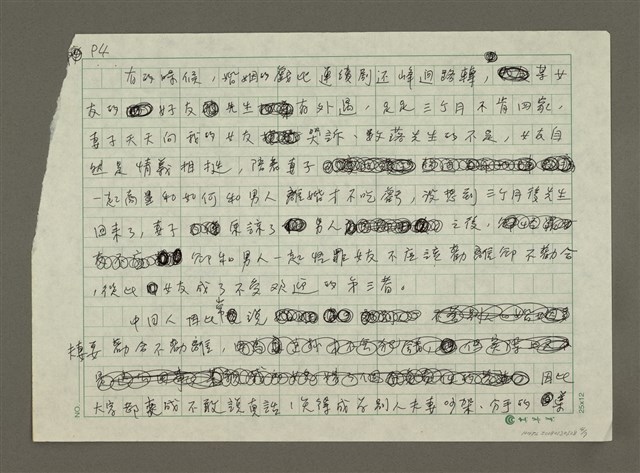 P4
有的時候，婚姻的戲比連續劇还峰迴路轉，某女
友的好友先生有外遇，足足三个月不肯回家，
妻子天天向我的女友哭訴、數落先生的不是，女友自
然是情義相挺，陪着妻子
一起商量如何和男人離婚才不吃虧，沒想到三个月後先生
回來了，妻子原諒了男人之後，
卻和男人一起怪罪女友不应該勸離卻不勸合
，從此女友成了不受欢迎的第三者。
中国人因此常說
夫妻要勸合不勸離，因此
大家都变成不敢說真話，免得成為別人夫妻吵架、分手的
NO.
25x12